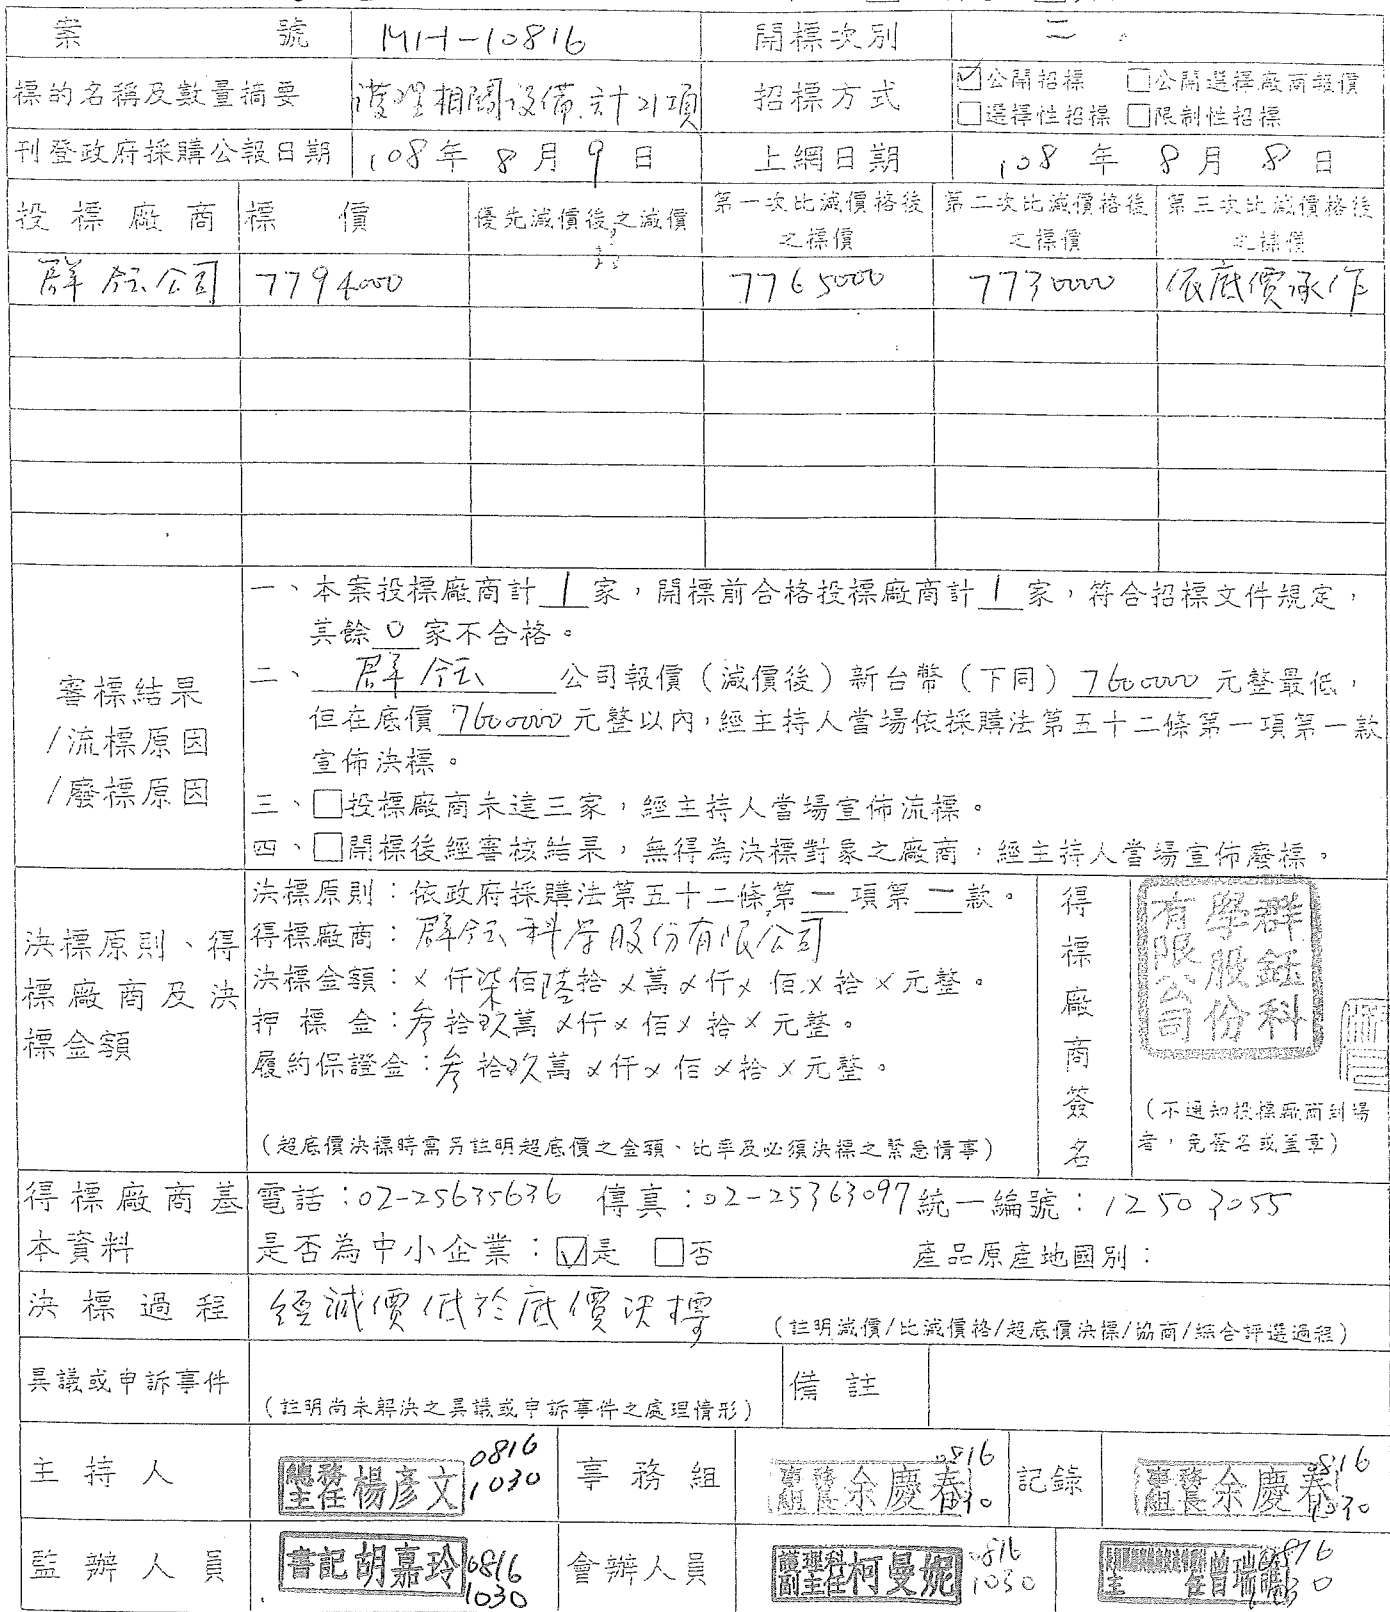 案號 MIH-10816 開標次別 二
標的名稱及數量摘要 護理相關設備.計21項 招標方式 ☑公開招標 □公開選擇廠商報價
□選擇性招標 □限制性招標
刊登政府採購公報日期 108年8月9日 上網日期 108年8月8日
投標廠商 標價 優先減價後之減價 第一次比減價格後之標價 第二次比減價格後之標價 第三次比減價格後之標價
群鈺公司 7794000 7765000 7730000 依底價承作
審標結果
/流標原因
/廢標原因
一、本案投標廠商計 1 家,開標前合格投標廠商計 1 家,符合招標文件規定,
其餘 0 家不合格。
二、 群鈺 公司報價(減價後)新台幣(下同) 7600000 元整最低,
但在底價 7600000 元整以內,經主持人當場依採購法第五十二條第一項第一款
宣佈決標。
三、□投標廠商未達三家,經主持人當場宣佈流標。
四、□開標後經審核結果,無得為決標對象之廠商,經主持人當場宣佈廢標。
決標原則、得
標廠商及決
標金額
決標原則:依政府採購法第五十二條第一項第一款。
得標廠商:群鈺科學股份有限公司
決標金額:×仟柒佰陸拾×萬×仟×佰×拾×元整。
押標金:參拾玖萬×仟×佰×拾×元整。
履約保證金:參拾玖萬×仟×佰×拾×元整。
(超底價決標時需另註明超底價之金額、比率及必須決標之緊急情事)
得標廠商簽名
群鈺科
學股份
有限公司
(不通知投標廠商到場
者,免簽名或蓋章)
得標廠商基
本資料
電話:02-25635636 傳真:02-25363097 統一編號:12503055
是否為中小企業:☑是 □否 產品原產地國別:
決標過程 經減價低於底價決標 (註明減價/比減價格/超底價決標/協商/綜合評選過程)
異議或申訴事件 (註明尚未解決之異議或申訴事件之處理情形) 備註
主持人 總務主任楊彥文 0816 1030 事務組 事務組長余慶春 0816 1030 記錄 事務組長余慶春 0816 1030
監辦人員 書記胡嘉玲 0816 1030 會辦人員 護理科副主任柯曼妮 0816 1030